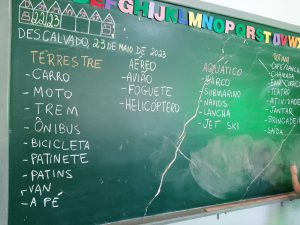 GHIJKLMNOPQRSTUVW
22/23
DESCALVADO, 23 DE MAIO DE 2023
TERRESTRE
- CARRO
- MOTO
- TREM
- ÔNIBUS
- BICICLETA
- PATINETE
- PATINS
- VAN
- A PÉ
AÉREO
- AVIÃO
- FOGUETE
- HELICÓPTERO
AQUÁTICO
- BARCO
- SUBMARINO
- NAVIOS
- LANCHA
- JET SKI
ROTINA
- CHAMADA
- TEATRO
- ATIVIDADE
- JANTAR
- BRINCADEIRA
- SAÍDA